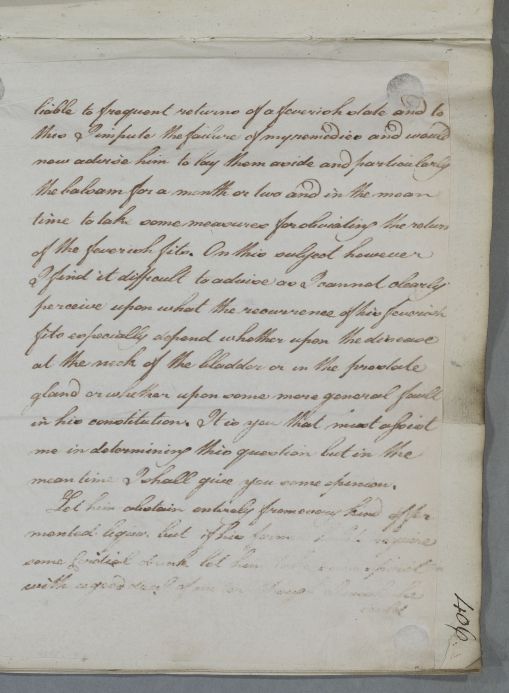 liable to frequent returns of a feverish state and to
this I impute the failure of my remedies and would
now advise him to lay them aside and particularly
the balsam for a month or two and in the mean
time to take some measures for obviating the return
of the feverish fits. On this subject however
I find it difficult to advise as I cannot clearly
perceive upon what the recurrence of his feverish
fits especially depend whether upon the disease
at the neck of the bladder or in the prostate
gland or whether upon some more general fault
in his constitution. It is you that must assist
me in determining this question but in the
mean time I shall give you some opinion.
Let him abstain entirely from every kind of fer
mented liquor but if his require
some Cordial drink let him
with a good deal of water
406